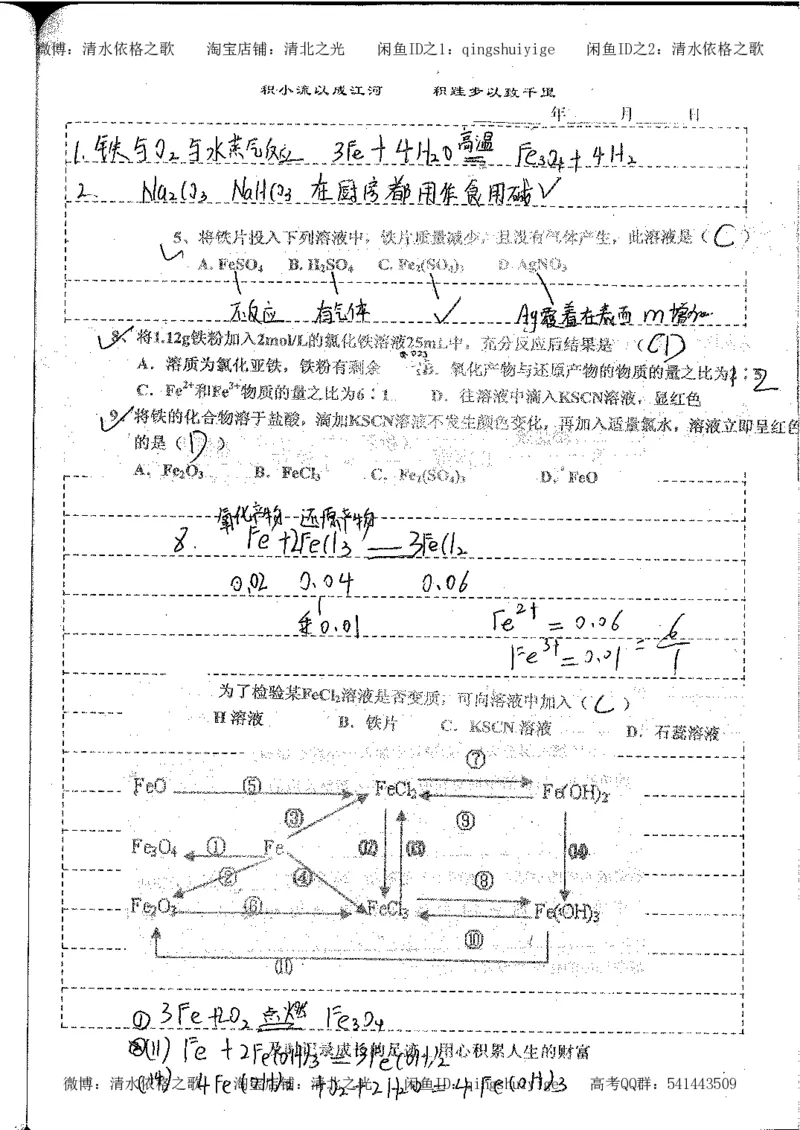 微博：清水依格之歌 淘宝店铺：清北之光 闲鱼ID之1：qingshuiyige 闲鱼ID之2：清水依格之歌
积小流以成江河 积跬步以致千里
年 月 日
1. 铁与O₂与水蒸气反应 3Fe+4H₂O 高温 = Fe₃O₄+4H₂
2. Na₂CO₃ NaHCO₃ 在厨房都用作食用碱√
5、将铁片投入下列溶液中，铁片质量减少，且没有气体产生，此溶液是（ C ）
A. FeSO₄ B. H₂SO₄ C. Fe₂(SO₄)₃ D. AgNO₃
不反应 有气体 √ Ag覆着在表面 m增加
8、将1.12g铁粉加入2mol/L的氯化铁溶液25mL中，充分反应后结果是 （ ）
A．溶质为氯化亚铁，铁粉有剩余 B．氧化产物与还原产物的物质的量之比为1：2
C．Fe²⁺和Fe³⁺物质的量之比为6：1 D．往溶液中滴入KSCN溶液，显红色
9、将铁的化合物溶于盐酸，滴加KSCN溶液不发生颜色变化，再加入适量氯水，溶液立即呈红色
的是（ D ）
A．Fe₂O₃ B．FeCl₃ C．Fe₂(SO₄)₃ D．FeO
氧化产物 还原产物
8. Fe+2FeCl₃ = 3FeCl₂
0.02 0.04 0.06
0.01 Fe²⁺ = 0.06
Fe³⁺ = 0.01 = 6/1
为了检验某FeCl₂溶液是否变质，可向溶液中加入（ C ）
H溶液 B．铁片 C．KSCN溶液 D．石蕊溶液
⑦
FeO ⑤ FeCl₂ Fe(OH)₂
③ ⑨
Fe₃O₄ ① Fe ⑫ ⑬ ⑭
② ④ ⑧
Fe₂O₃ ⑥ FeCl₃ Fe(OH)₃
⑩
⑪
① 3Fe+2O₂ 点燃 Fe₃O₄
(11) Fe + 2Fe(OH)₃ = 3Fe(OH)₂
及时记录成长的足迹 用心积累人生的财富
(14) 4Fe(OH)₂ + O₂+2H₂O = 4Fe(OH)₃
微博：清水依格之歌 淘宝店铺：清北之光 闲鱼ID：qingshuiyige 高考QQ群：541443509